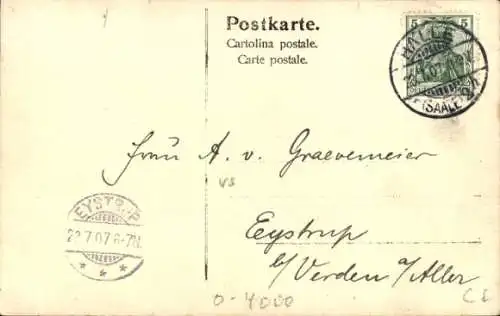 Postkarte.
Cartolina postale.
Carte postale.
5 5
HALLE
(SAALE) 2
Frau A. v. Graevemeier
vs
EYSTRUP
22.7.07.6-7N.
Eystrup
b/ Verden a/Aller
0-4000